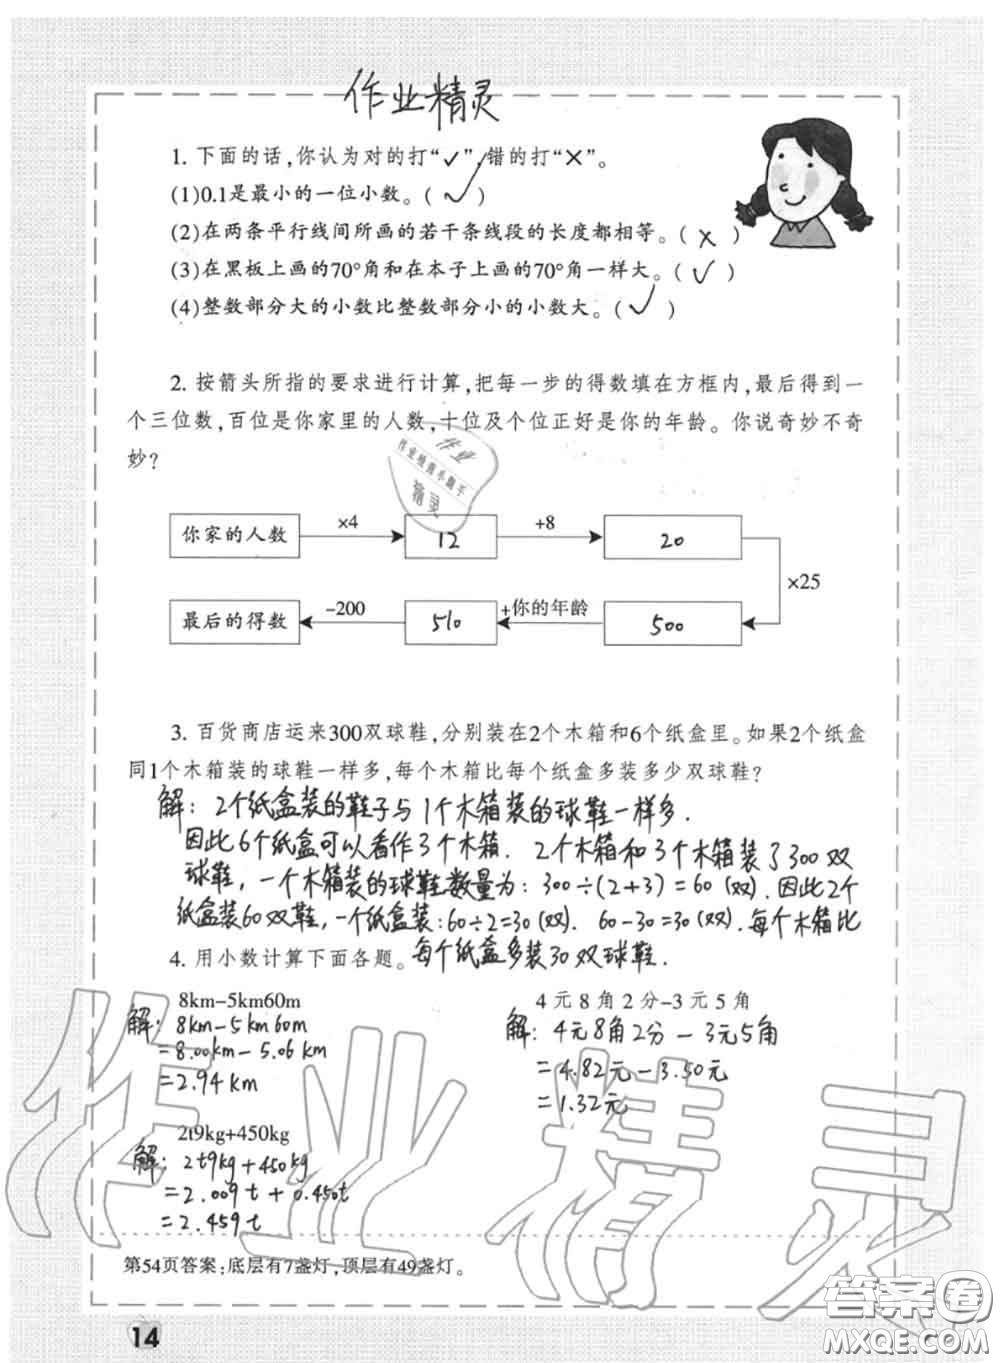 作业精灵
1. 下面的话,你认为对的打“✓”,错的打“✕”。
(1)0.1是最小的一位小数。( ✓ )
(2)在两条平行线间所画的若干条线段的长度都相等。( × )
(3)在黑板上画的70°角和在本子上画的70°角一样大。( ✓ )
(4)整数部分大的小数比整数部分小的小数大。( ✓ )
2. 按箭头所指的要求进行计算,把每一步的得数填在方框内,最后得到一
个三位数,百位是你家里的人数,十位及个位正好是你的年龄。你说奇妙不奇
妙?
作业
精灵
你家的人数 ×4 12 +8 20
×25
最后的得数 -200 510 +你的年龄 500
3. 百货商店运来300双球鞋,分别装在2个木箱和6个纸盒里。如果2个纸盒
同1个木箱装的球鞋一样多,每个木箱比每个纸盒多装多少双球鞋?
解: 2个纸盒装的鞋子与1个木箱装的球鞋一样多.
因此6个纸盒可以看作3个木箱. 2个木箱和3个木箱装了300双
球鞋,一个木箱装的球鞋数量为: 300÷(2+3)=60(双). 因此2个
纸盒装60双鞋,一个纸盒装:60÷2=30(双). 60-30=30(双).每个木箱比
每个纸盒多装30双球鞋.
4. 用小数计算下面各题。
8km-5km60m 4元8角2分-3元5角
解: 8km-5km60m 解: 4元8角2分-3元5角
=8.00km-5.06km =4.82元-3.50元
=2.94km =1.32元
2t9kg+450kg
解: 2t9kg+450kg
=2.009t+0.450t
=2.459t
作业精灵
第54页答案:底层有7盏灯,顶层有49盏灯。
14
答案卷
MXQE.COM